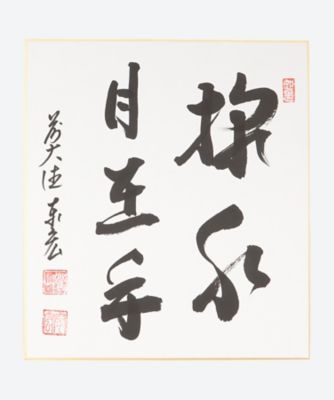 掬水
月在手
前大徳